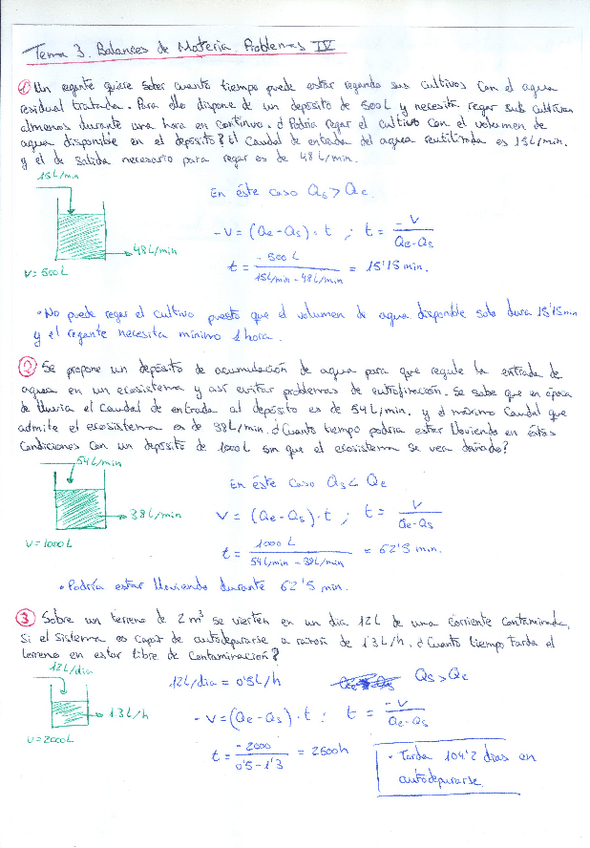 Tema 3. Balances de Materia Problemas IV
① Un regante quiere saber cuanto tiempo puede estar regando sus cultivos con el agua
residual tratada. Para ello dispone de un depósito de 500L y necesita regar sus cultivos
almenos durante una hora en continuo. ¿Podría regar el cultivo con el volumen de
agua disponible en el depósito? El caudal de entrada del agua reutilizada es 15L/min.
y el de salida necesario para regar es de 48 L/min.
15L/min
48L/min
V=500L
En éste caso Qs > Qe
-V = (Qe-Qs)·t ; t = -V / Qe-Qs
t = -500 L / 15L/min - 48L/min = 15'15 min.
• No puede regar el cultivo puesto que el volumen de agua disponible solo dura 15'15 min
y el regante necesita mínimo 1 hora.
② Se propone un depósito de acumulación de agua para que regule la entrada de
agua en un ecosistema y así evitar problemas de eutrofización. Se sabe que en época
de lluvia el caudal de entrada al depósito es de 54L/min. y el máximo caudal que
admite el ecosistema es de 38L/min. ¿Cuanto tiempo podría estar lloviendo en éstas
condiciones con un depósito de 1000L sin que el ecosistema se vea dañado?
54L/min
38L/min
V=1000L
En éste caso Qs < Qe
V = (Qe-Qs)·t ; t = V / Qe-Qs
t = 1000 L / 54L/min - 38L/min = 62'5 min.
• Podría estar lloviendo durante 62'5 min.
③ Sobre un terreno de 2m³ se vierten en un día 12L de una corriente contaminada.
Si el sistema es capaz de autodepurarse a razón de 1'3L/h. ¿Cuanto tiempo tarda el
terreno en estar libre de contaminación?
12L/dia
1'3L/h
V=2000L
12L/dia = 0'5L/h
Qs > Qe
-V = (Qe-Qs)·t : t = -V / Qe-Qs
t = -2000 / 0'5-1'3 = 2500h
• Tarda 104'2 días en
autodepurarse